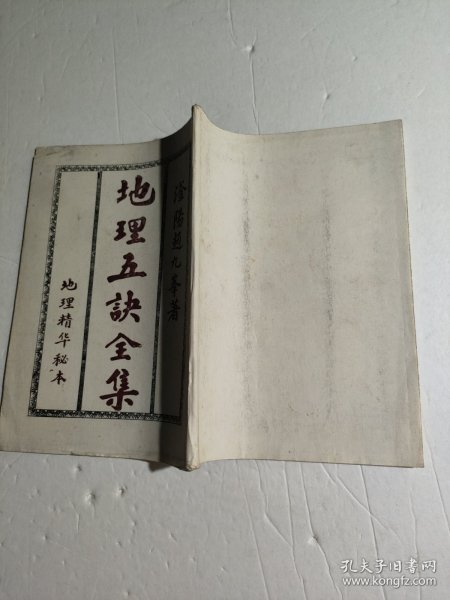 陽趙九峯著
地理五訣全集
地理精华秘本
孔夫子旧书网
www.kongfz.com